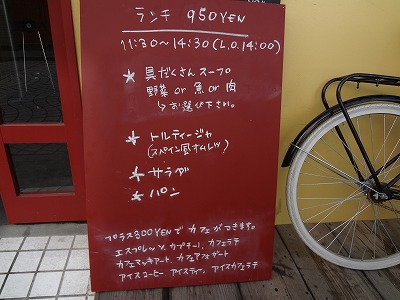 ランチ 950YEN
11:30〜14:30(L.O.14:00)
★ 具だくさんスープ
野菜 or 魚 or 肉
↳お選び下さい。
★ トルティージャ
(スペイン風オムレツ)
★ サラダ
★ パン
プラス300YENで カフェができます。
エスプレッソ カプチーノ、カフェラテ
カフェマッキアート、カフェアフォガート
アイスコーヒー アイスティー、アイスカフェラテ